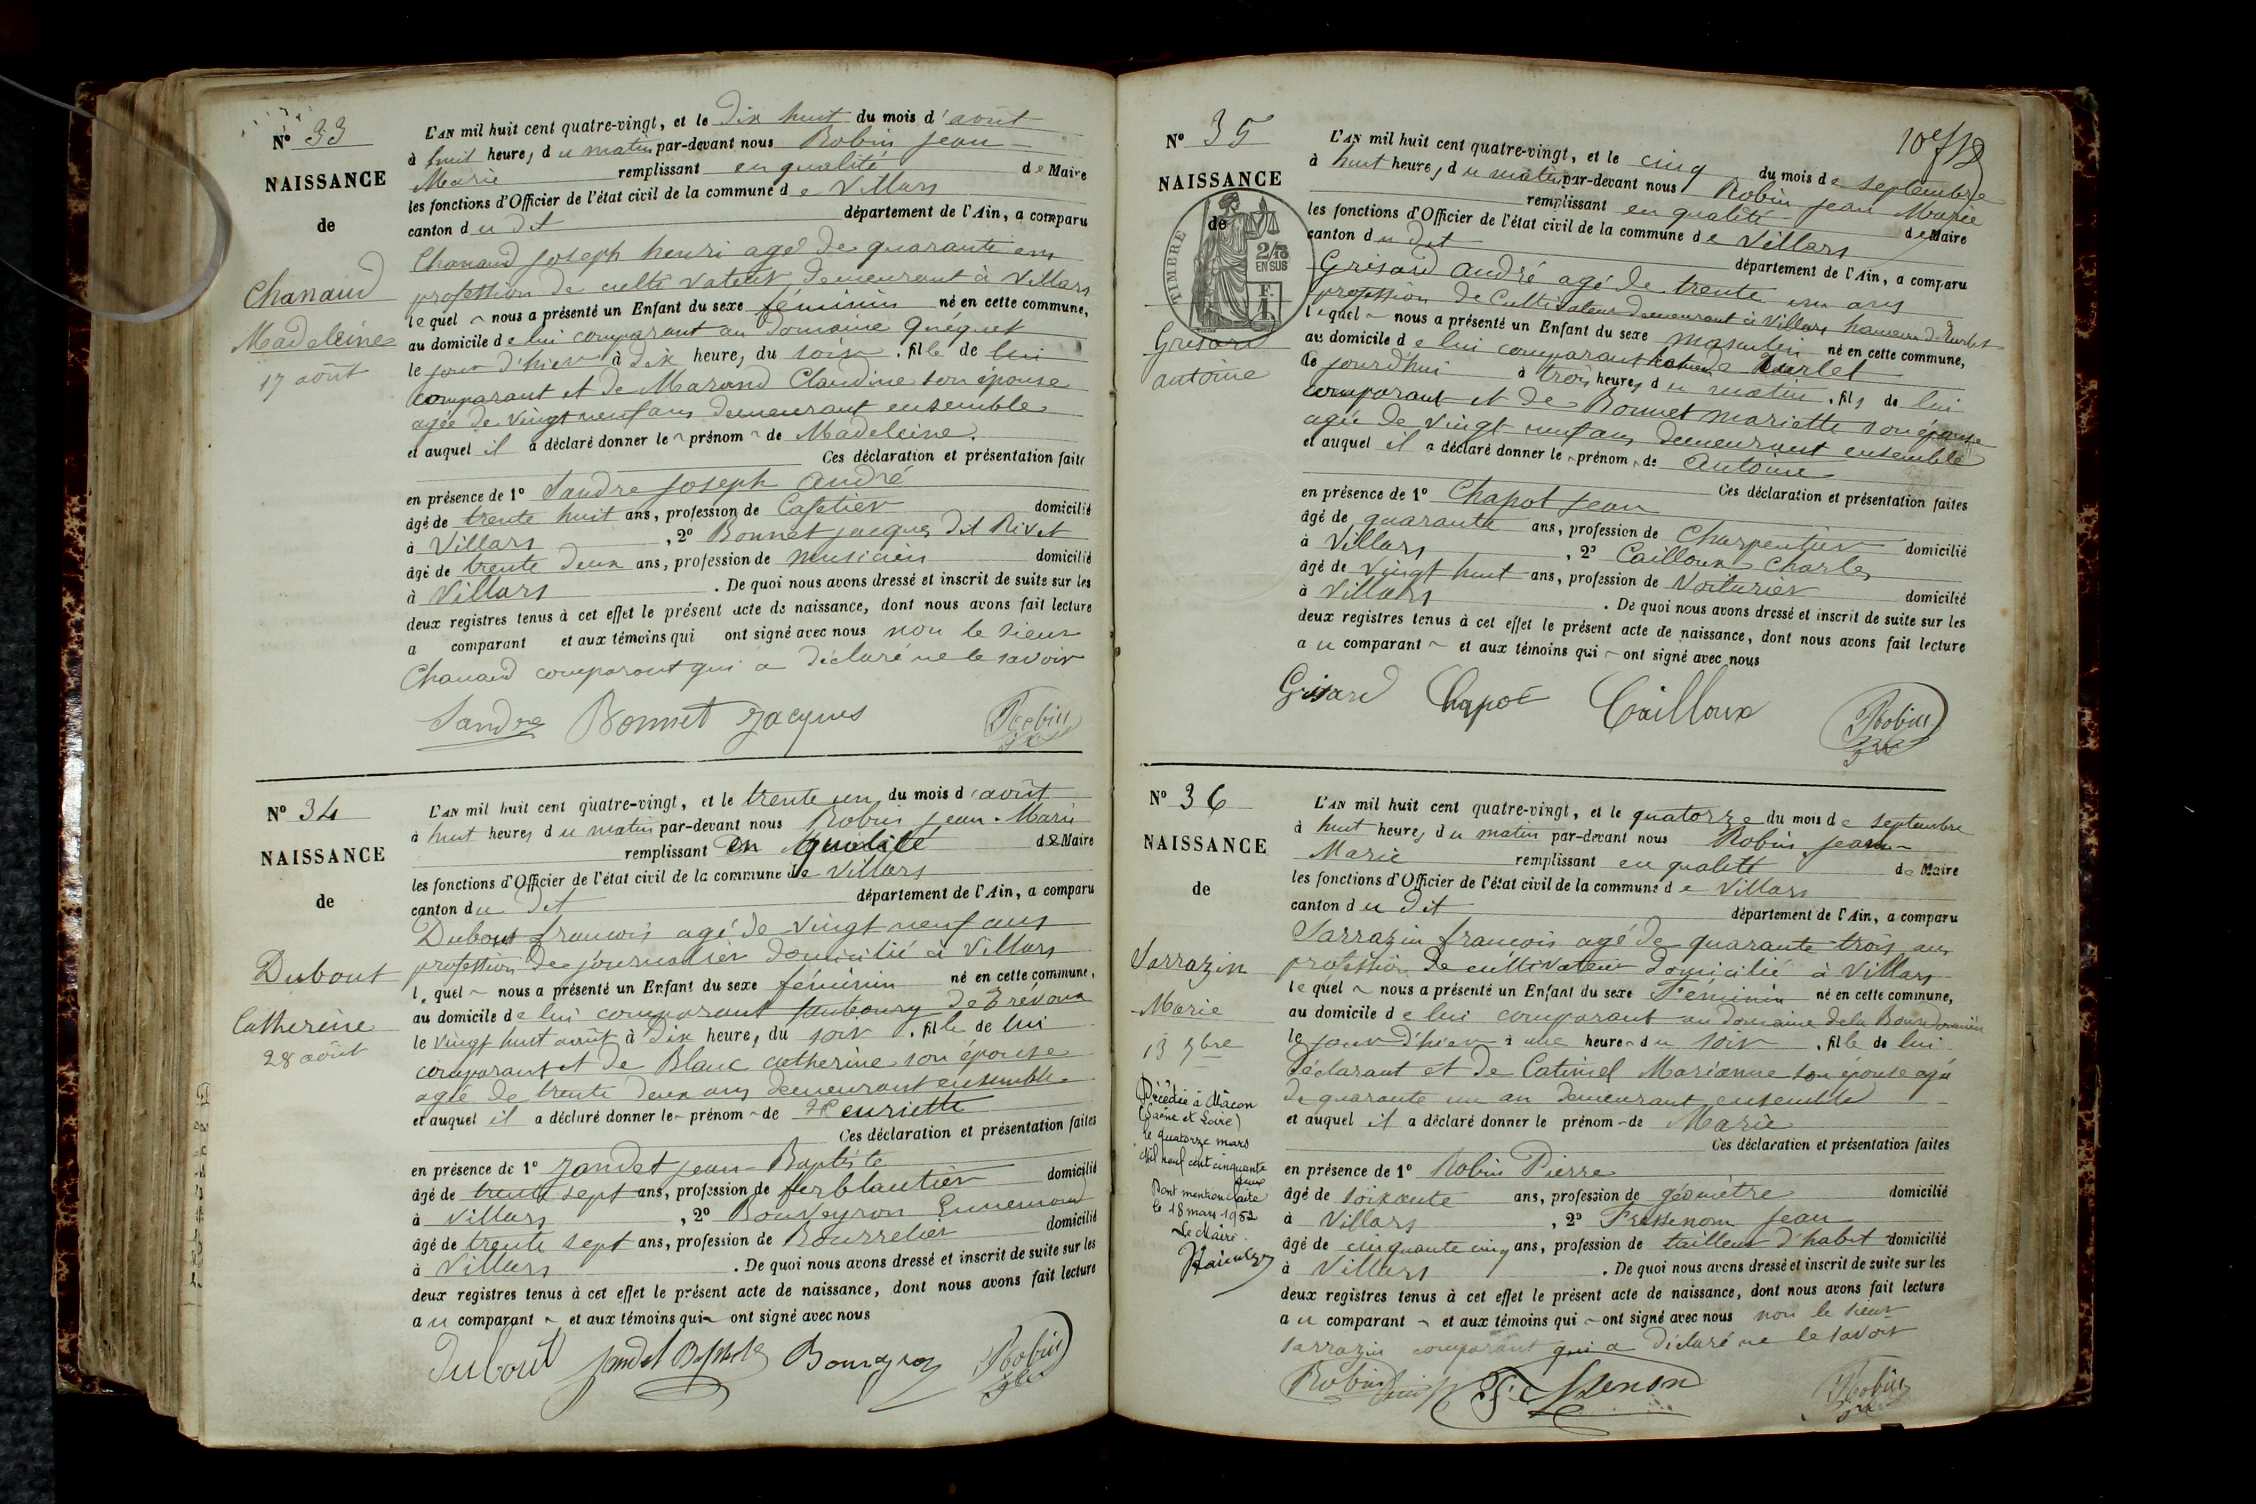 N° 33
NAISSANCE
de
Chanaud
Madeleine
17 août
L'AN mil huit cent quatre-vingt, et le dix huit du mois d'août
à huit heures du matin par-devant nous Robin Jean
Marie remplissant en qualité de Maire
les fonctions d'Officier de l'état civil de la commune de Villars
canton du dit département de l'Ain, a comparu
Chanaud Joseph henri agé de quarante ans
profession de cultivateur demeurant à Villars
lequel nous a présenté un Enfant du sexe féminin né en cette commune,
au domicile de lui comparant au domaine
le jour d'hier à dix heures du soir, fille de lui
comparant et de Marand Claudine son épouse
agée de vingt neuf ans demeurant ensemble
et auquel il a déclaré donner le prénom de Madeleine.
Ces déclaration et présentation faites
en présence de 1° Sandre Joseph André
âgé de trente huit ans, profession de Cafetier domicilié
à Villars, 2° Bonnet jacques dit Rivet
âgé de trente deux ans, profession de musicien domicilié
à Villars. De quoi nous avons dressé et inscrit de suite sur les
deux registres tenus à cet effet le présent acte de naissance, dont nous avons fait lecture
a comparant et aux témoins qui ont signé avec nous non le sieur
Chanaud comparant qui a déclaré ne le savoir
Sandre Bonnet Jacques Robin
N° 34
NAISSANCE
de
Dubout
Catherine
28 août
L'AN mil huit cent quatre-vingt, et le trente un du mois d'août
à huit heures du matin par-devant nous Robin Jean Marie
remplissant en qualité de Maire
les fonctions d'Officier de l'état civil de la commune de Villars
canton du dit département de l'Ain, a comparu
Dubout françois agé de vingt neuf ans
profession de journalier domicilié à Villars
lequel nous a présenté un Enfant du sexe féminin né en cette commune,
au domicile de lui comparant faubourg de Trévoux
le vingt huit août à dix heures du soir, fille de lui
comparant et de Blanc catherine son épouse
agée de trente deux ans demeurant ensemble
et auquel il a déclaré donner le prénom de Henriette
Ces déclaration et présentation faites
en présence de 1° Jandet Jean-Baptiste
âgé de trente sept ans, profession de ferblantier domicilié
à Villars, 2° Bouveyron Ennemond
âgé de trente sept ans, profession de Bourrelier domicilié
à Villars. De quoi nous avons dressé et inscrit de suite sur les
deux registres tenus à cet effet le présent acte de naissance, dont nous avons fait lecture
au comparant et aux témoins qui ont signé avec nous
Dubout Jandet Baptiste Robin
N° 35
NAISSANCE
de
TIMBRE
2/10
EN SUS
F.
1
Grisard
antoine
L'AN mil huit cent quatre-vingt, et le cinq du mois de septembre
à huit heures du matin par-devant nous Robin Jean Marie
remplissant en qualité de Maire
les fonctions d'Officier de l'état civil de la commune de Villars
canton du dit département de l'Ain, a comparu
Grisard André agé de trente un ans
profession de Cultivateur demeurant à Villars hameau de
lequel nous a présenté un Enfant du sexe masculin né en cette commune,
au domicile de lui comparant hameau de
le jourd'hui à trois heures du matin, fils de lui
comparant et de Bonnet mariette son épouse
agée de vingt neuf ans demeurant ensemble
et auquel il a déclaré donner le prénom de Antoine
Ces déclaration et présentation faites
en présence de 1° Chapot Jean
âgé de quarante ans, profession de Charpentier domicilié
à Villars, 2° Cailloux Charles
âgé de vingt huit ans, profession de Voiturier domicilié
à Villars. De quoi nous avons dressé et inscrit de suite sur les
deux registres tenus à cet effet le présent acte de naissance, dont nous avons fait lecture
au comparant et aux témoins qui ont signé avec nous
Grisard Chapot Cailloux Robin
N° 36
NAISSANCE
de
Sarrazin
Marie
13 7bre
Décédée à Mâcon
(Saône et Loire)
le quatorze mars
mil neuf cent cinquante
deux
Dont mention faite
le 18 mars 1952
Le Maire
L'AN mil huit cent quatre-vingt, et le quatorze du mois de septembre
à huit heures du matin par-devant nous Robin Jean
Marie remplissant en qualité de Maire
les fonctions d'Officier de l'état civil de la commune de Villars
canton du dit département de l'Ain, a comparu
Sarrazin françois agé de quarante trois ans
profession de cultivateur domicilié à Villars
lequel nous a présenté un Enfant du sexe Féminin né en cette commune,
au domicile de lui comparant au domaine de la
le jour d'hier à une heure du soir, fille de lui
déclarant et de Catinel Marianne son épouse agé
de quarante un an demeurant ensemble
et auquel il a déclaré donner le prénom de Marie
Ces déclaration et présentation faites
en présence de 1° Robin Pierre
âgé de soixante ans, profession de géomètre domicilié
à Villars, 2° Jean
âgé de cinquante cinq ans, profession de tailleur d'habit domicilié
à Villars. De quoi nous avons dressé et inscrit de suite sur les
deux registres tenus à cet effet le présent acte de naissance, dont nous avons fait lecture
au comparant et aux témoins qui ont signé avec nous non le sieur
Sarrazin comparant qui a déclaré ne le savoir
Robin Robin